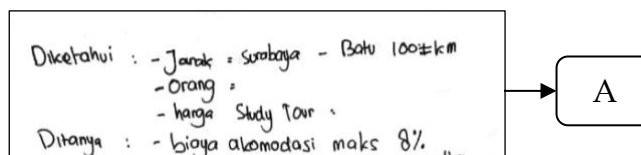 Diketahui : - Jarak = Surabaya - Batu 100± km
- Orang :
- harga Study Tour :
Ditanya : - biaya akomodasi maks 8%
A